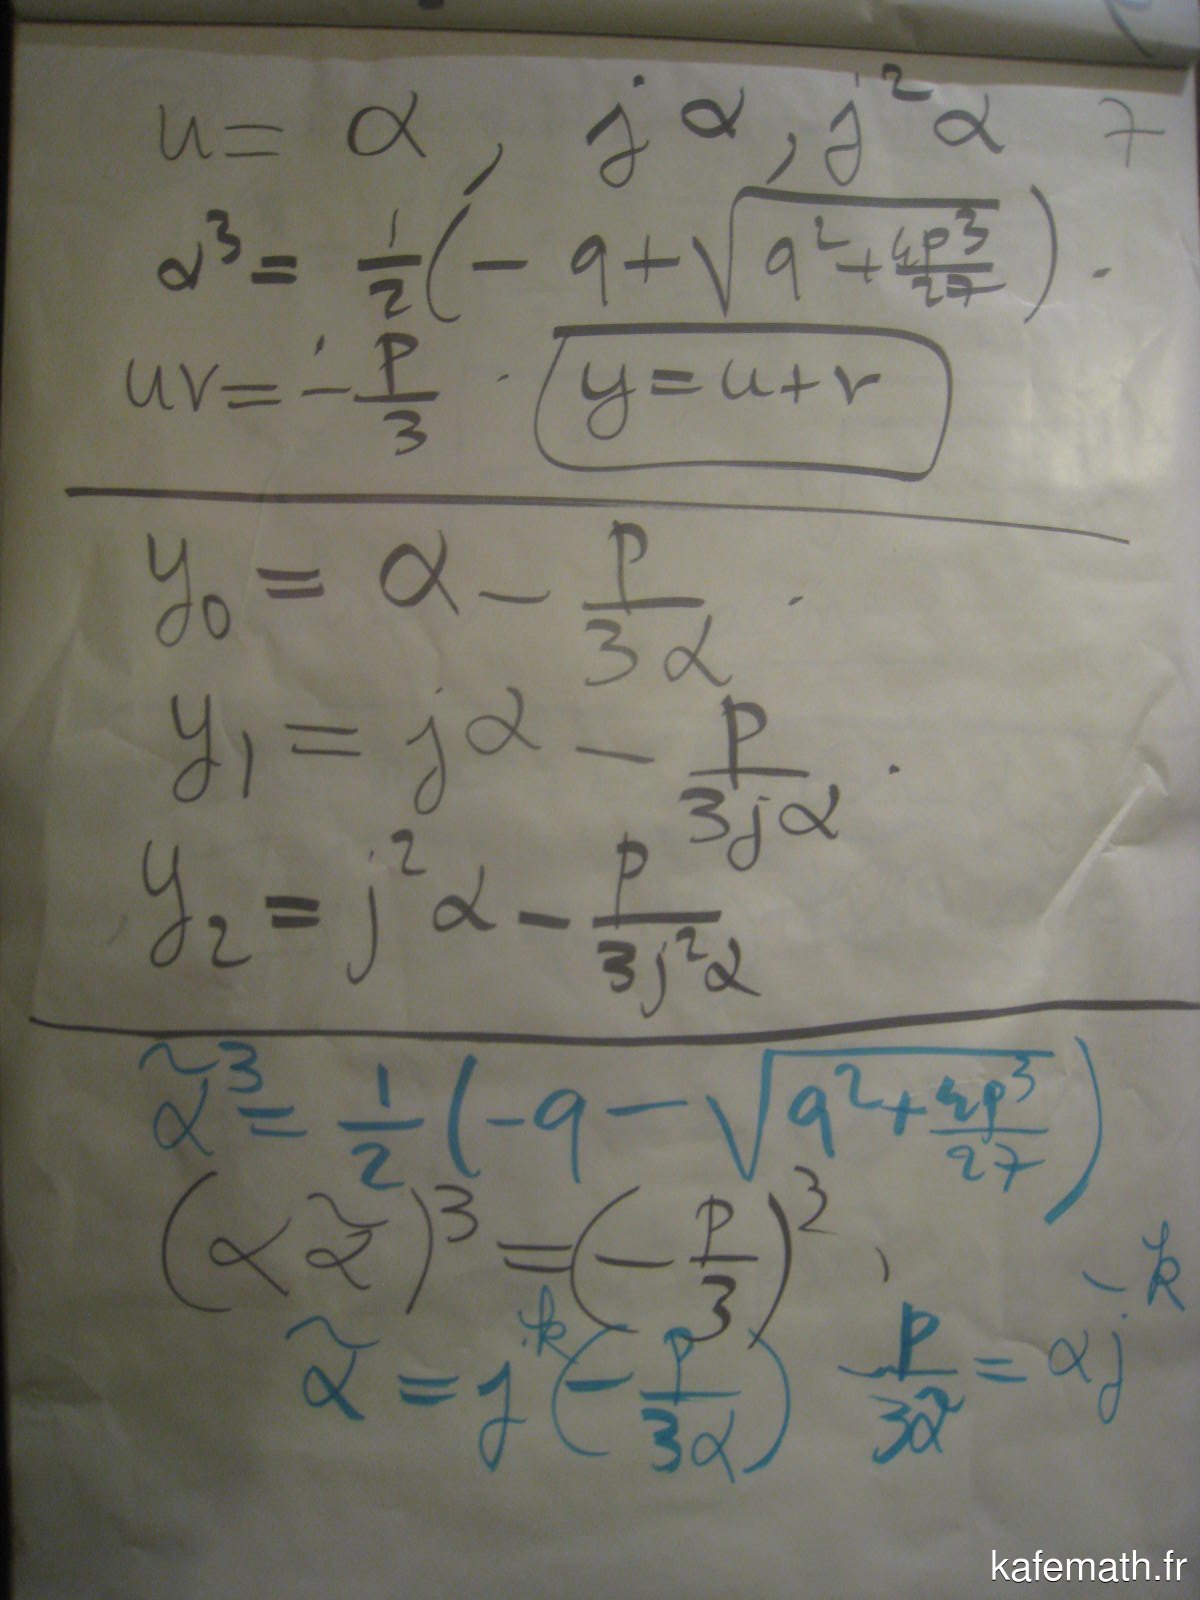 u = α , jα , j²α 7
α³ = 1/2 ( - q + √(q² + 4p³/27) ) .
uv = - p/3 . y = u + v
y₀ = α - p/3α .
y₁ = jα - p/3jα .
y₂ = j²α - p/3j²α
α̃³ = 1/2 ( - q - √(q² + 4p³/27) )
(α α̃)³ = (- p/3)³ ,
α̃ = jᵏ (- p/3α) - p/3α̃ = α j⁻ᵏ
kafemath.fr